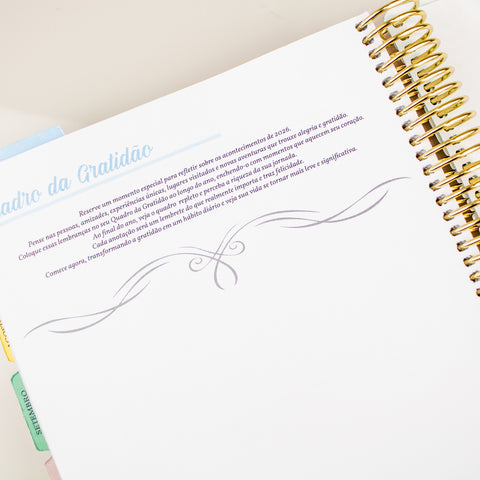 adro da Gratidão
Reserve um momento especial para refletir sobre os acontecimentos de 2026.
Pense nas pessoas, amizades, experiências únicas, lugares visitados e novas aventuras que trouxe alegria e gratidão.
Coloque essas lembranças no seu Quadro da Gratidão ao longo do ano, enchendo-o com momentos que aquecem seu coração.
Ao final do ano, veja o quadro repleto e perceba a riqueza da sua jornada.
Cada anotação será um lembrete do que realmente importa e traz felicidade.
Comece agora, transformando a gratidão em um hábito diário e veja sua vida se tornar mais leve e significativa.
SETEMBRO